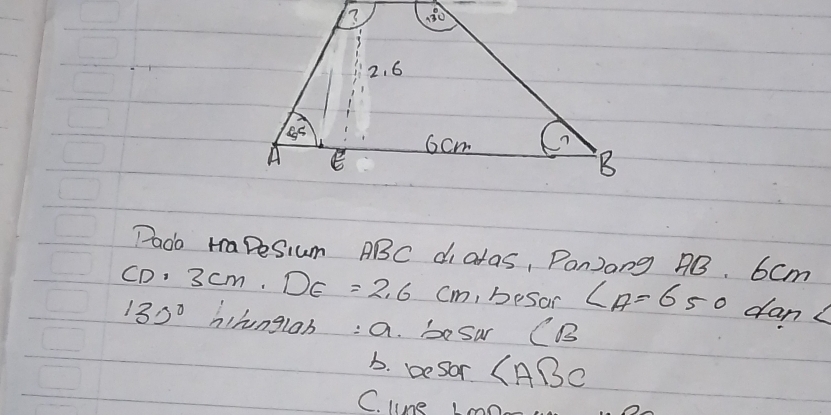 ?
130
2,6
65
?
A
E
6cm
B
Pada traPesium ABC diatas, Panjang AB. 6cm
CD. 3cm. DE = 2,6 cm, besar <A=650 dan <
130° hitunglah : a. besar <B
b. besar <ABC
C.